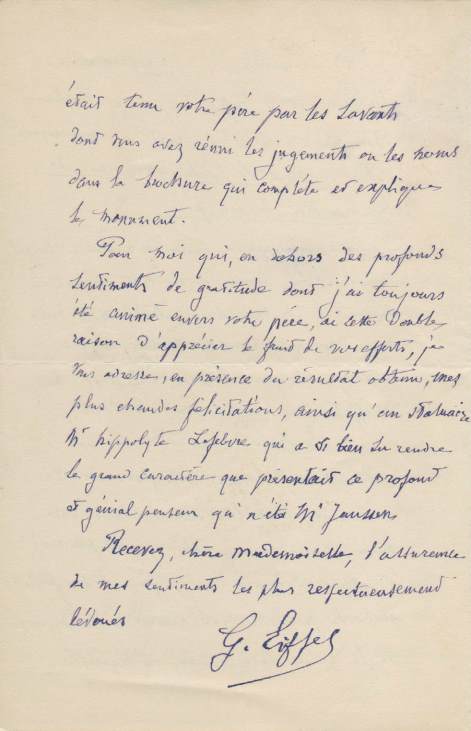 était tenu votre père par les savants
dont vous avez réuni les jugements ou les noms
dans la brochure qui complète et explique
le monument.
Pour moi qui, en dehors des profonds
sentiments de gratitude dont j'ai toujours
été animé envers votre père, ai cette double
raison d'apprécier le fruit de vos efforts, je
vous adresse, en présence du résultat obtenu, mes
plus chaudes félicitations, ainsi qu'au statuaire
Mr Hippolyte Lefebvre qui a si bien su rendre
le grand caractère que présentait ce profond
et génial penseur qu'a été Mr Janssen
Recevez, chère Mademoiselle, l'assurance
de mes sentiments les plus respectueusement
dévoués
G. Eiffel